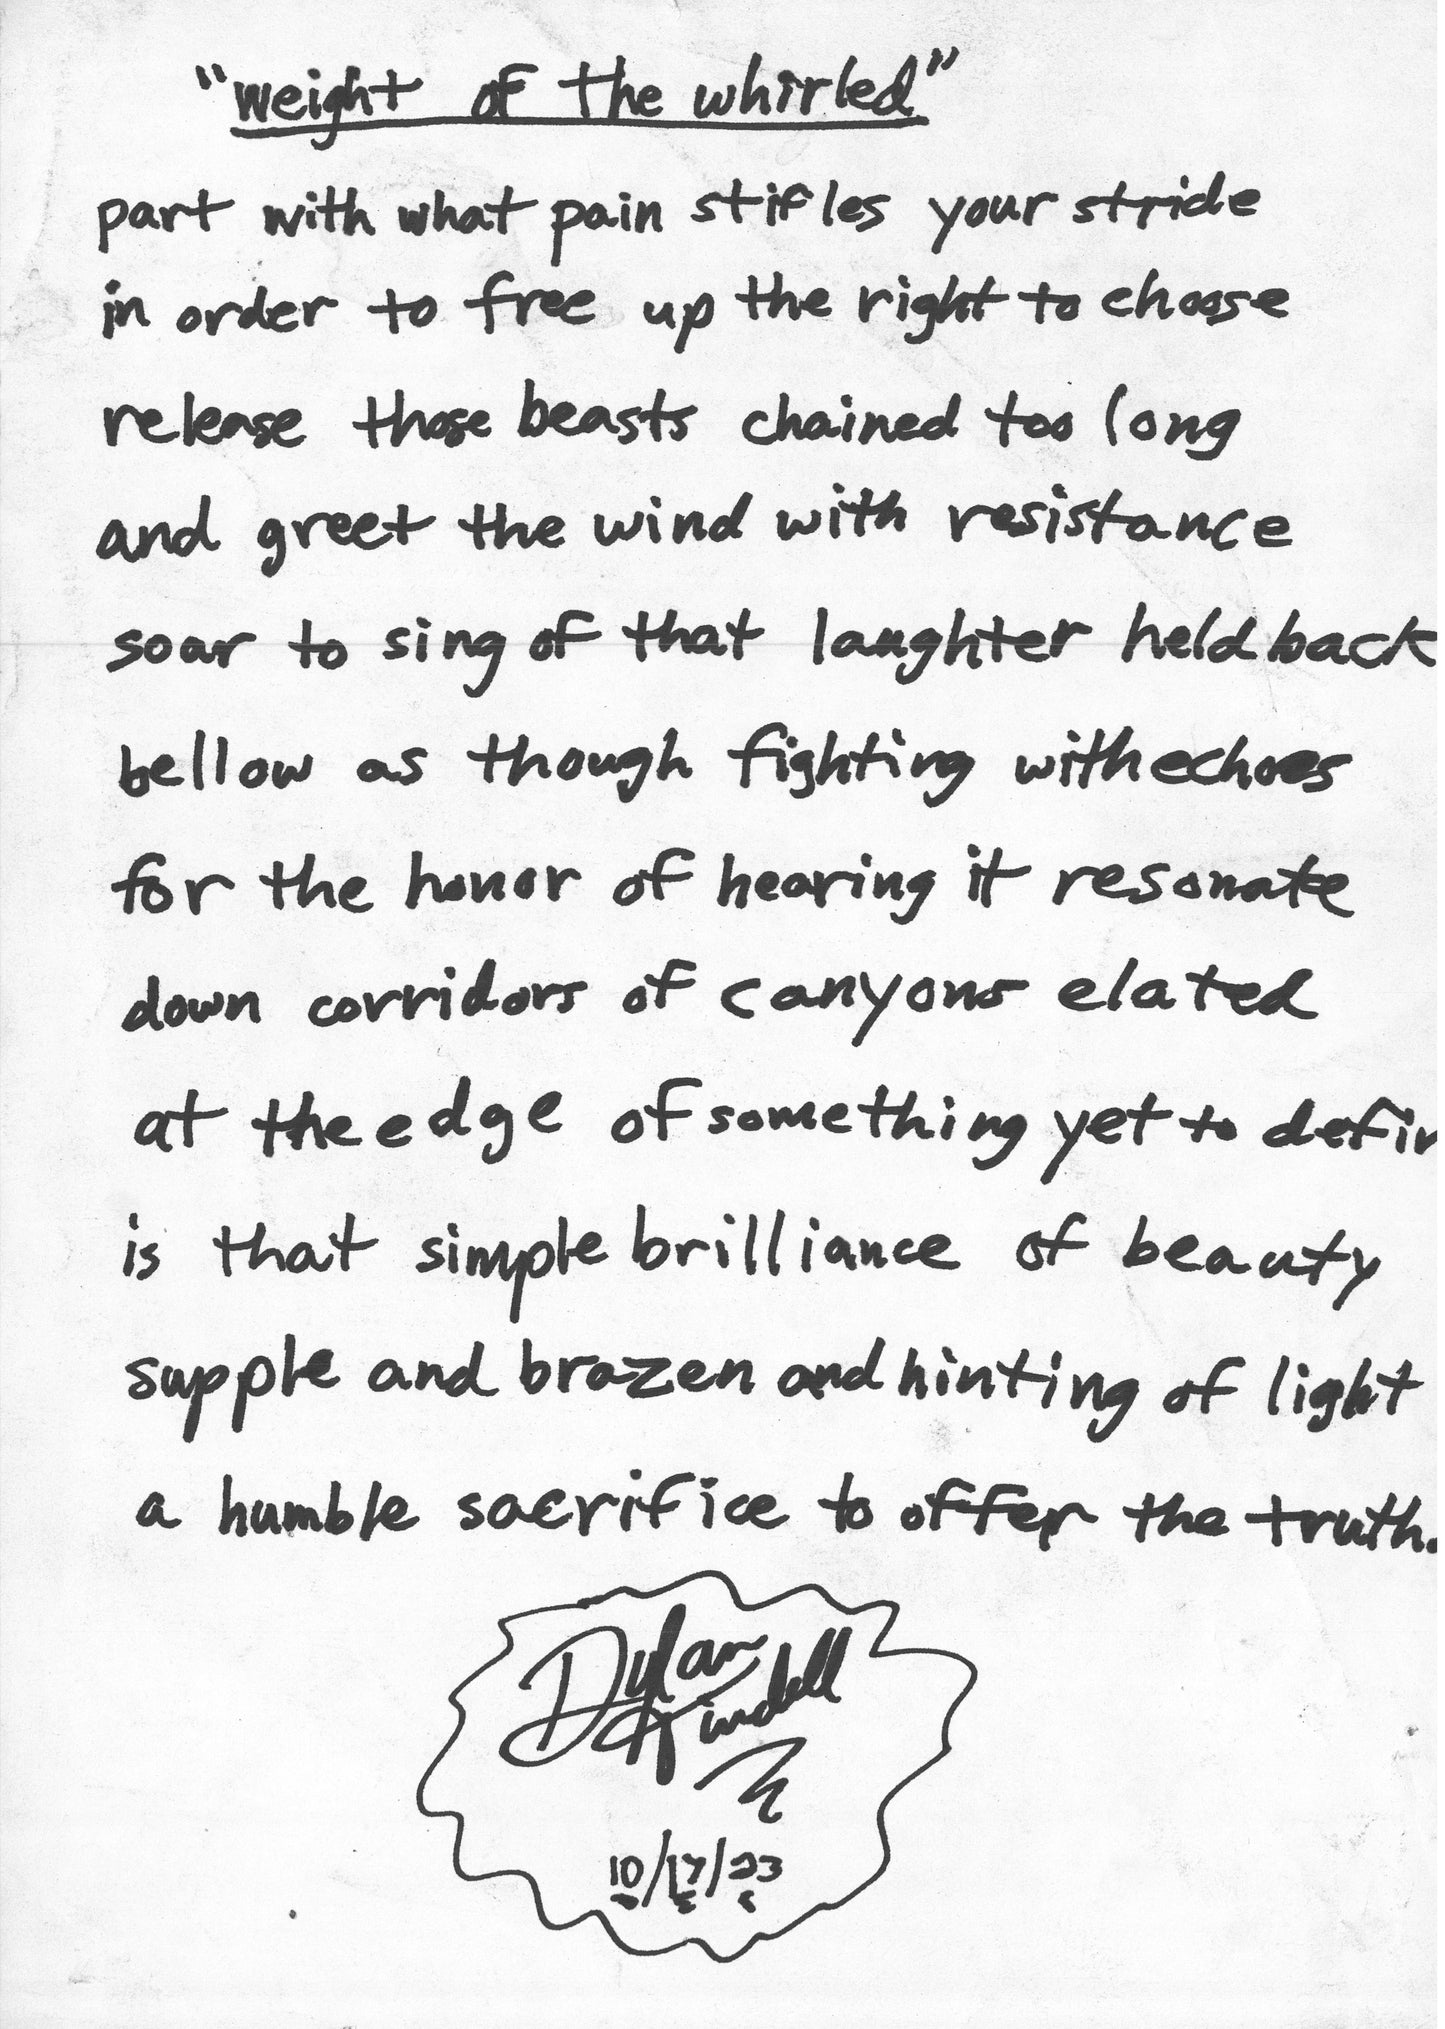 "weight of the whirled"
part with what pain stifles your stride
in order to free up the right to choose
release those beasts chained too long
and greet the wind with resistance
soar to sing of that laughter held back
bellow as though fighting with echoes
for the honor of hearing it resonate
down corridors of canyons elated
at the edge of something yet to defin
is that simple brilliance of beauty
supple and brazen and hinting of light
a humble sacrifice to offer the truth.
Dylan
Kindell
10/17/23